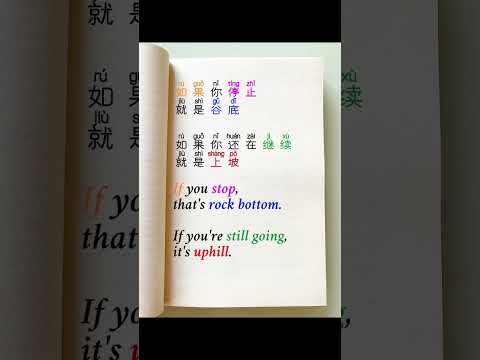 rú guǒ nǐ tíng zhǐ
如果你停止
jiù shì gǔ dǐ
就是谷底
rú guǒ nǐ huán zài jì xù
如果你还在继续
jiù shì shàng pō
就是上坡
If you stop,
that's rock bottom.
If you're still going,
it's uphill.